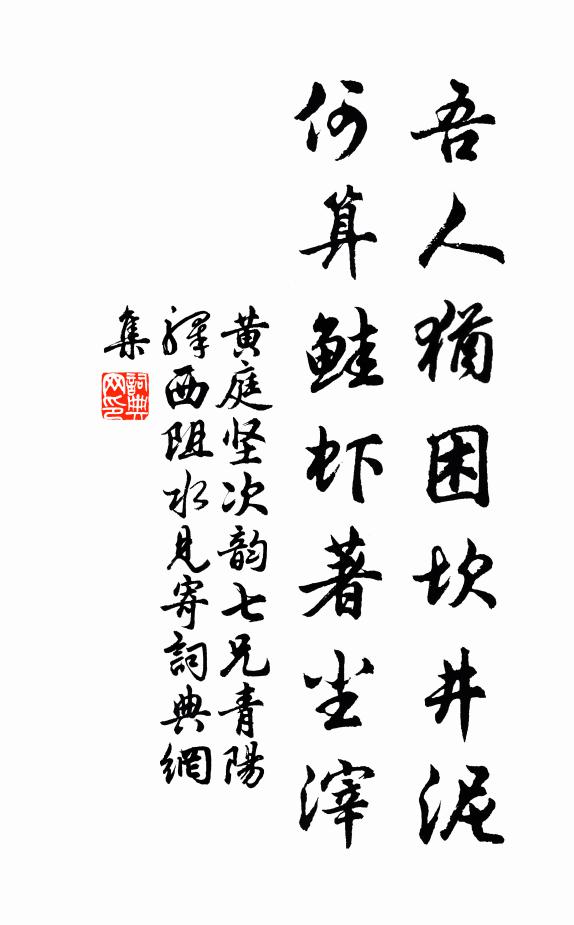 吾人猶困坎井泥
何算鮭虾著尘滓
黄庭坚次韵七兄青陽
驛西阻水見寄詞典網
集
詞典
网印